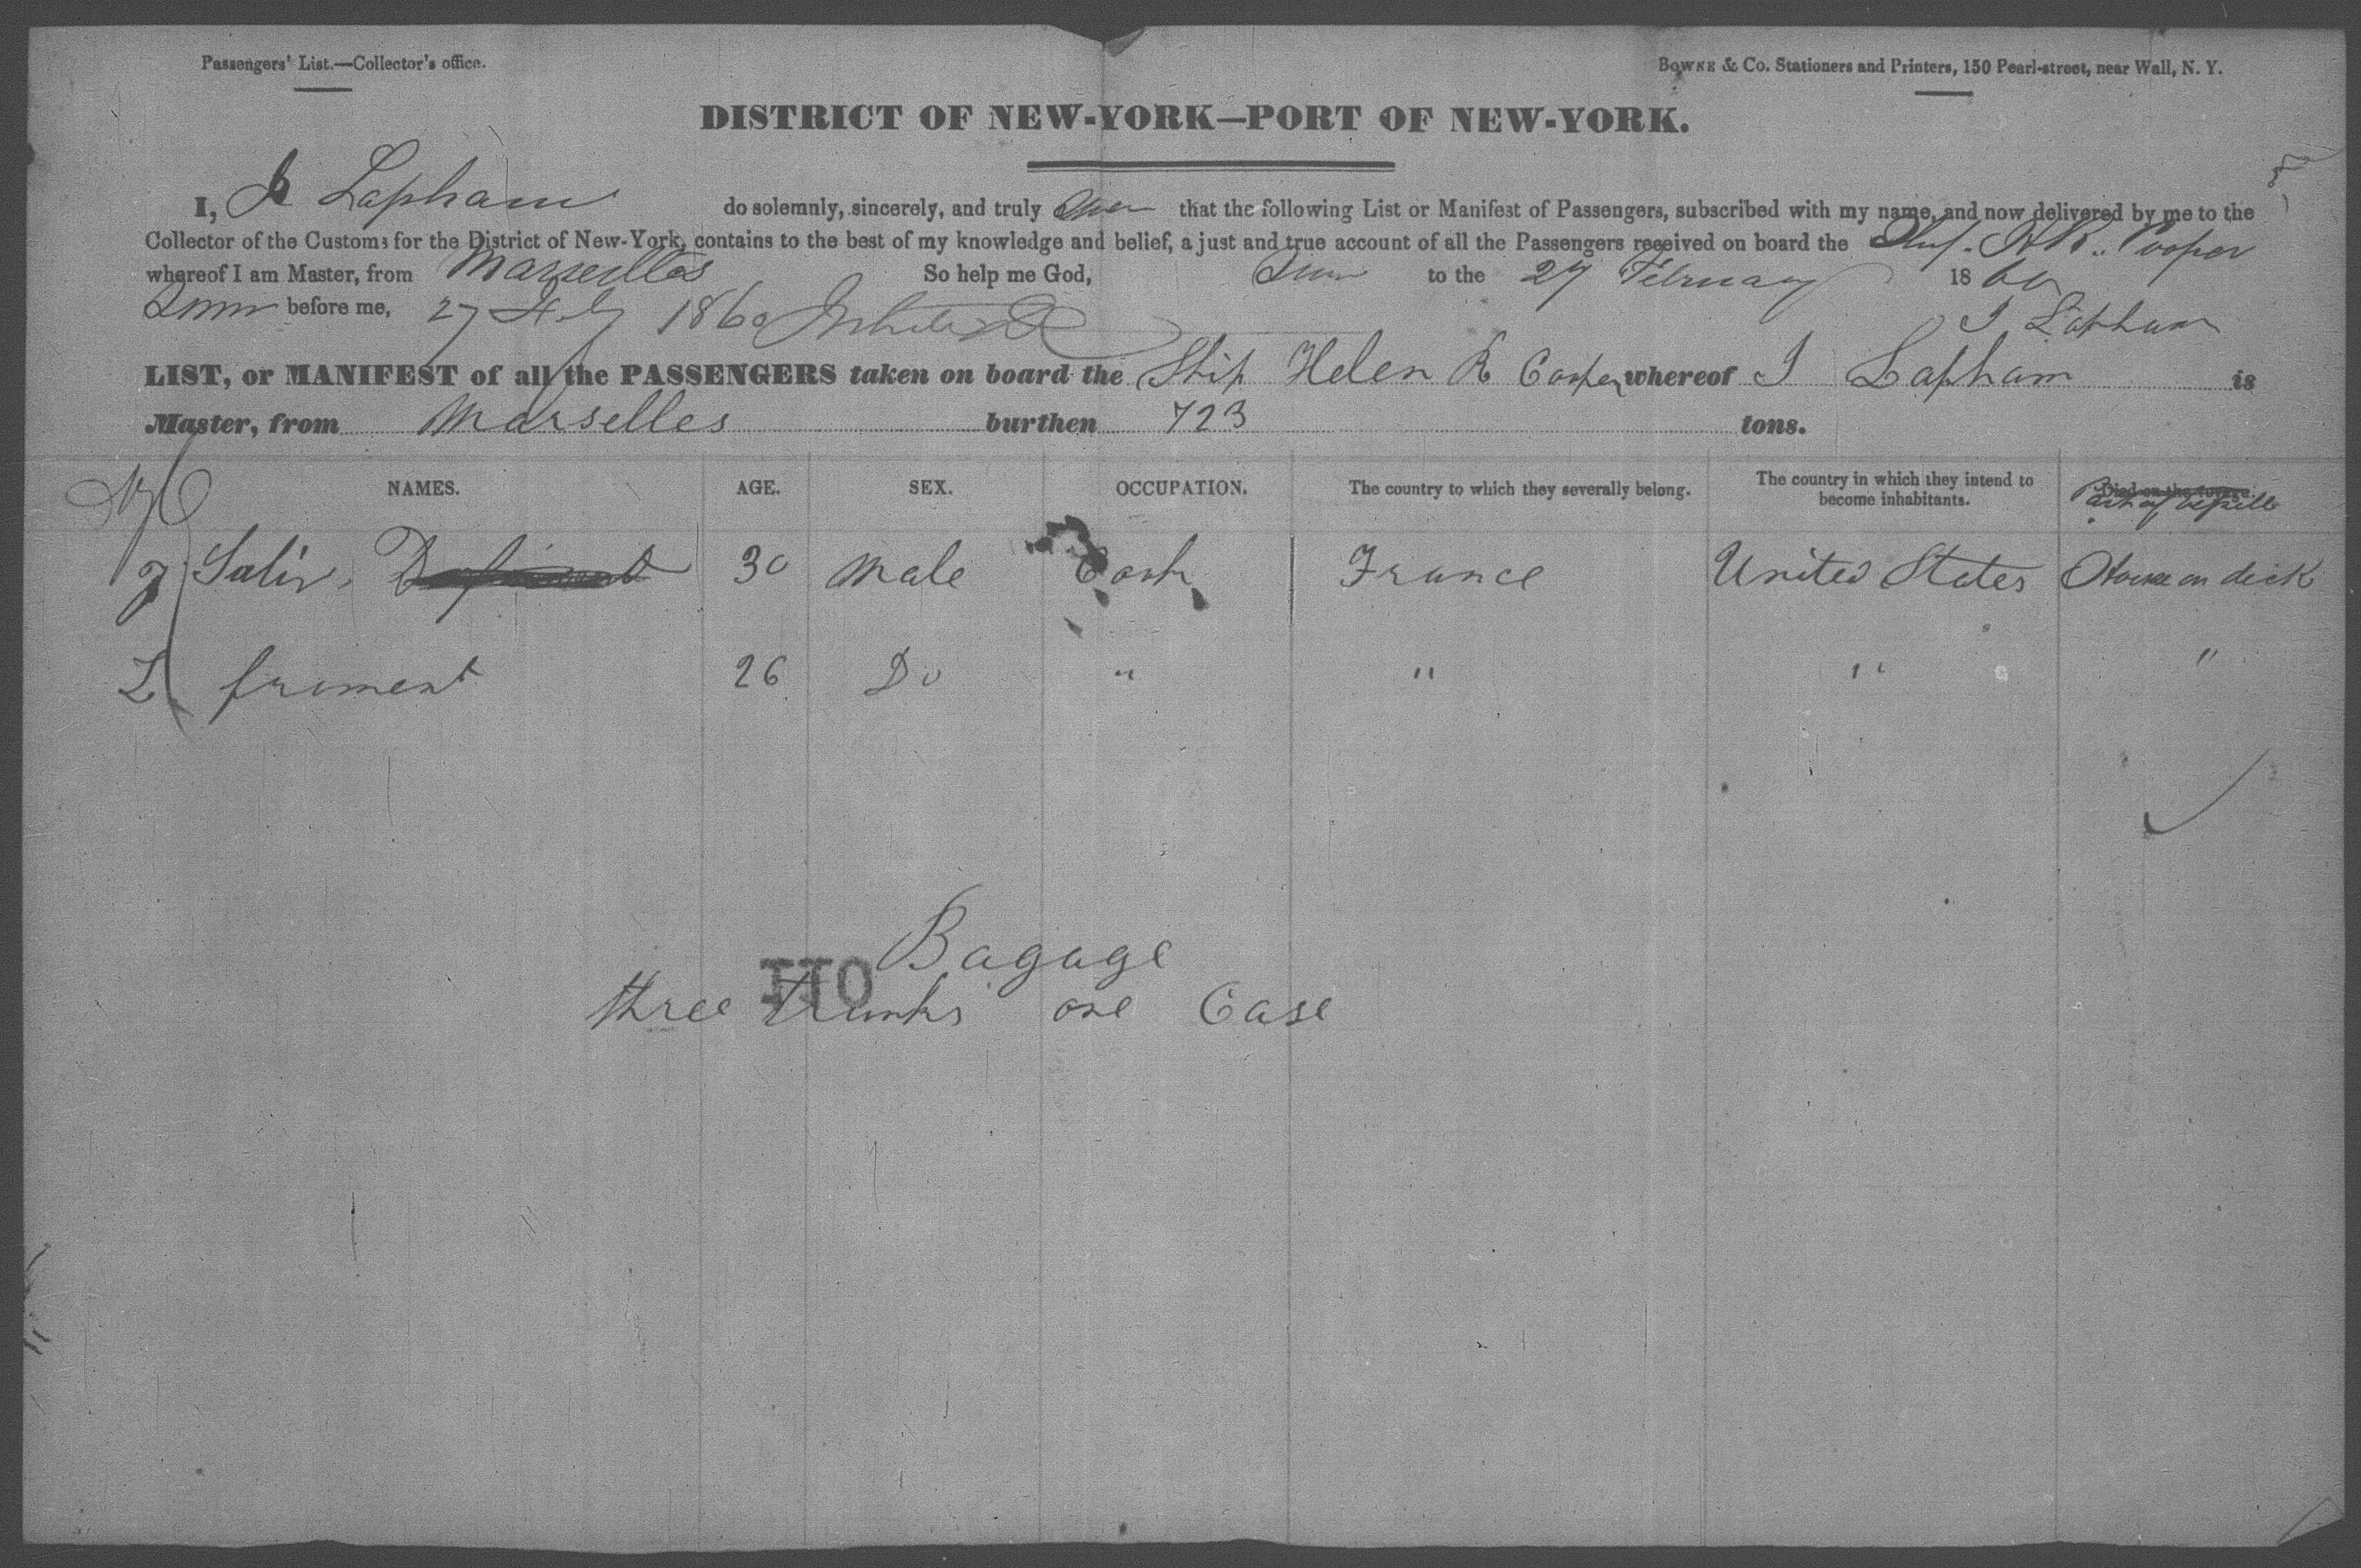 Passengers' List.—Collector's office.
BOWNE & Co. Stationers and Printers, 150 Pearl-street, near Wall, N. Y.
DISTRICT OF NEW-YORK—PORT OF NEW-YORK.
I, J Lapham do solemnly, sincerely, and truly Swear that the following List or Manifest of Passengers, subscribed with my name, and now delivered by me to the
Collector of the Customs for the District of New-York, contains to the best of my knowledge and belief, a just and true account of all the Passengers received on board the Ship H R Cooper
whereof I am Master, from Marseilles So help me God, Sworn to the 27 February 1860
Sworn before me, 27 Feby 1860
J Lapham
LIST, or MANIFEST of all the PASSENGERS taken on board the Ship Helen R Cooper whereof J Lapham is
Master, from Marselles burthen 723 tons.
NAMES. AGE. SEX. OCCUPATION. The country to which they severally belong. The country in which they intend to become inhabitants. Died on the voyage. Part of vessell
30 male Cook France United States House on deck
froment 26 Do " " " "
Bagage
110
three trunks one Case